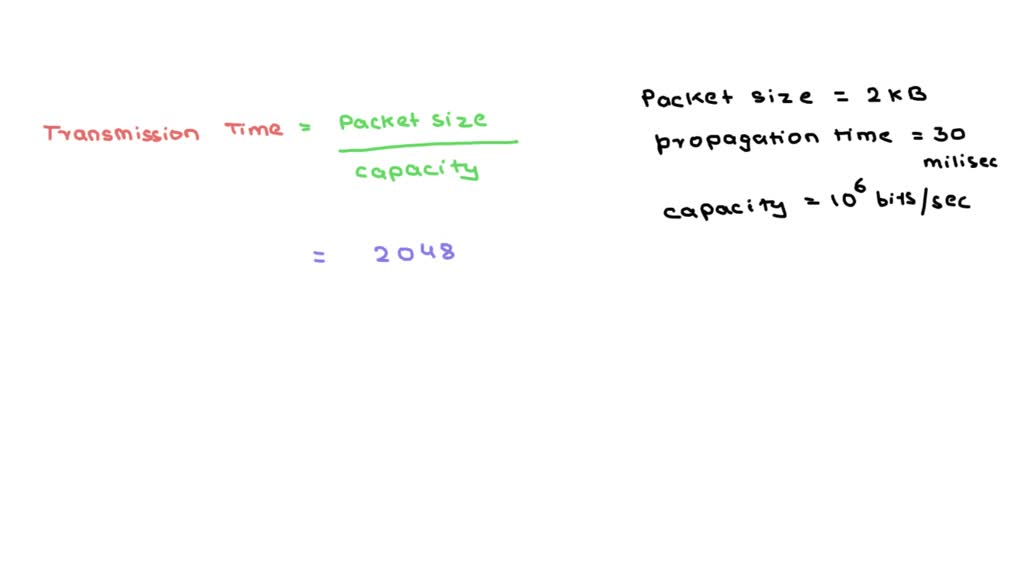 Transmission Time = Packet size
capacity
= 2048
Packet size = 2KB
propagation time = 30
milisec
capacity = 10^6 bits/sec